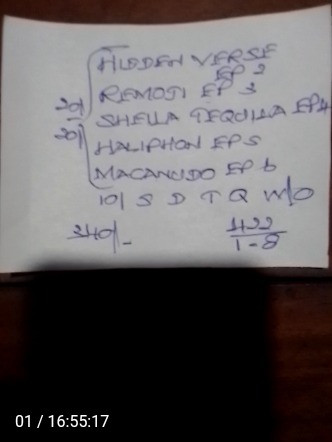 HIDDEN VERSE
EP 2
REMOSI EP 3
20/ SHELLA TEQUILLA EP4
20/ HALIPHON EP5
MACANUDO EP 6
10/ S D T Q W/O
340/- 422
1-8
01 / 16:55:17